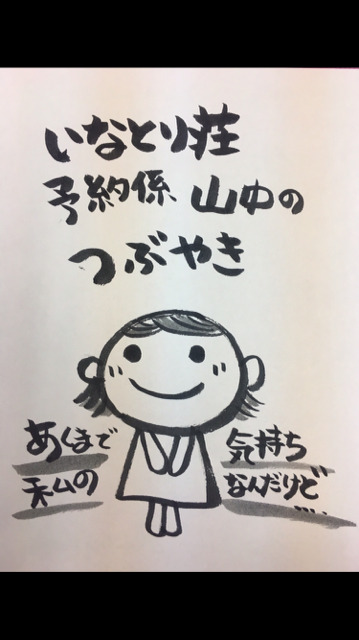 いなとり荘
予約係 山中の
つぶやき
あくまで
私の
気持ち
なんだけど
....